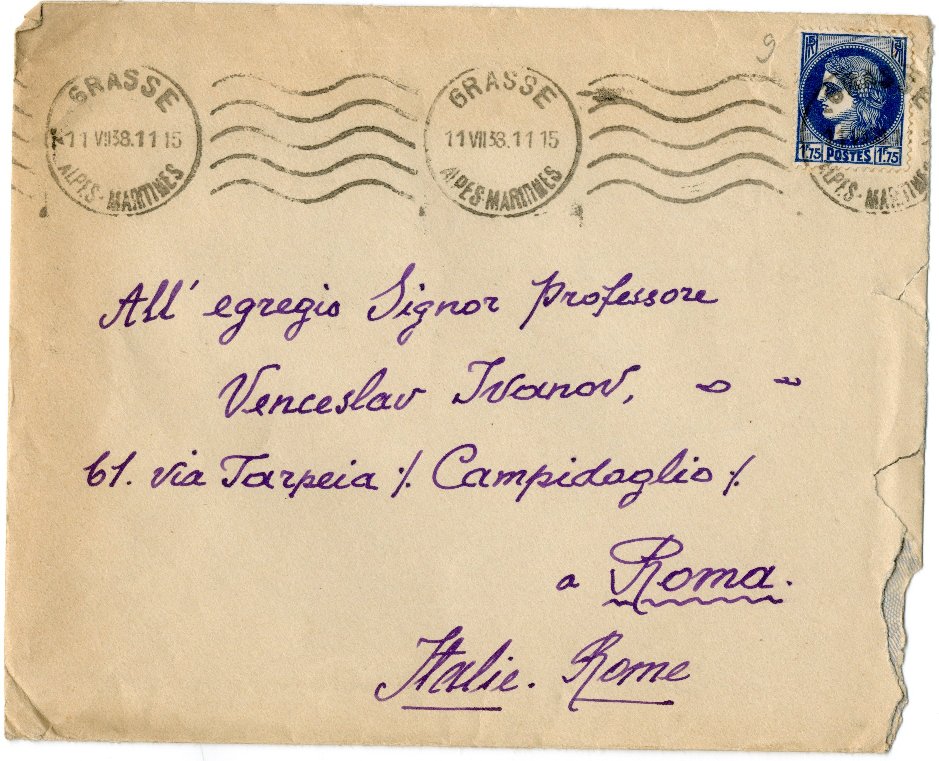 GRASSE
11 VII 38.11 15
ALPES-MARITIMES
GRASSE
11 VII 38.11 15
ALPES-MARITIMES
9
1.75 POSTES 1.75
ALPES-MARITIMES
All' egregio Signor Professore
Venceslav Ivanov,
61. via Tarpeia ·/. Campidoglio ·/.
a Roma.
Italie. Rome